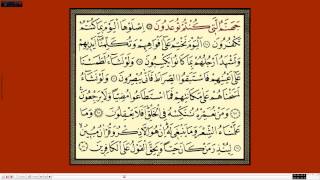 جَهَنَّمُ الَّتِي كُنتُمْ تُوعَدُونَ ۝ اصْلَوْهَا الْيَوْمَ بِمَا كُنتُمْ
تَكْفُرُونَ ۝ الْيَوْمَ نَخْتِمُ عَلَىٰ أَفْوَاهِهِمْ وَتُكَلِّمُنَا أَيْدِيهِمْ
وَتَشْهَدُ أَرْجُلُهُم بِمَا كَانُوا يَكْسِبُونَ ۝ وَلَوْ نَشَاءُ لَطَمَسْنَا
عَلَىٰ أَعْيُنِهِمْ فَاسْتَبَقُوا الصِّرَاطَ فَأَنَّىٰ يُبْصِرُونَ ۝ وَلَوْ نَشَاءُ
لَمَسَخْنَاهُمْ عَلَىٰ مَكَانَتِهِمْ فَمَا اسْتَطَاعُوا مُضِيًّا وَلَا يَرْجِعُونَ
۝ وَمَن نُّعَمِّرْهُ نُنَكِّسْهُ فِي الْخَلْقِ أَفَلَا يَعْقِلُونَ ۝ وَمَا
عَلَّمْنَاهُ الشِّعْرَ وَمَا يَنبَغِي لَهُ إِنْ هُوَ إِلَّا ذِكْرٌ وَقُرْآنٌ مُّبِينٌ ۝
لِّيُنذِرَ مَن كَانَ حَيًّا وَيَحِقَّ الْقَوْلُ عَلَى الْكَافِرِينَ ۝